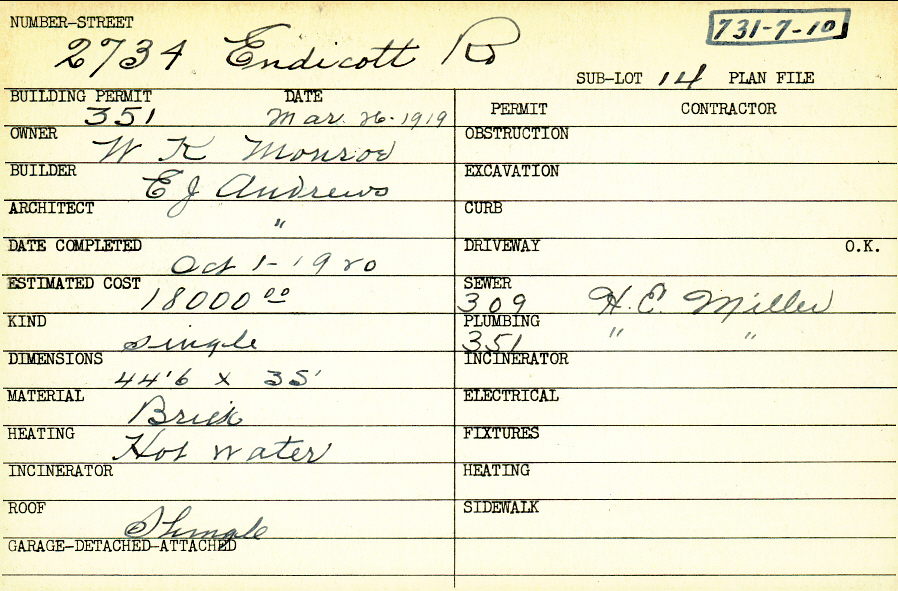 NUMBER-STREET
2734 Endicott Rd
731-7-10
SUB-LOT 14 PLAN FILE
BUILDING PERMIT DATE
351 Mar. 26-1919
OWNER
W K Monroe
BUILDER
E J Andrews
ARCHITECT
"
DATE COMPLETED
Oct 1-1920
ESTIMATED COST
18000 00
KIND
single
DIMENSIONS
44'6 x 35'
MATERIAL
Brick
HEATING
Hot water
INCINERATOR
ROOF
Shingle
GARAGE-DETACHED-ATTACHED
PERMIT CONTRACTOR
OBSTRUCTION
EXCAVATION
CURB
DRIVEWAY O.K.
SEWER
309 H. E. Miller
PLUMBING
351 " "
INCINERATOR
ELECTRICAL
FIXTURES
HEATING
SIDEWALK